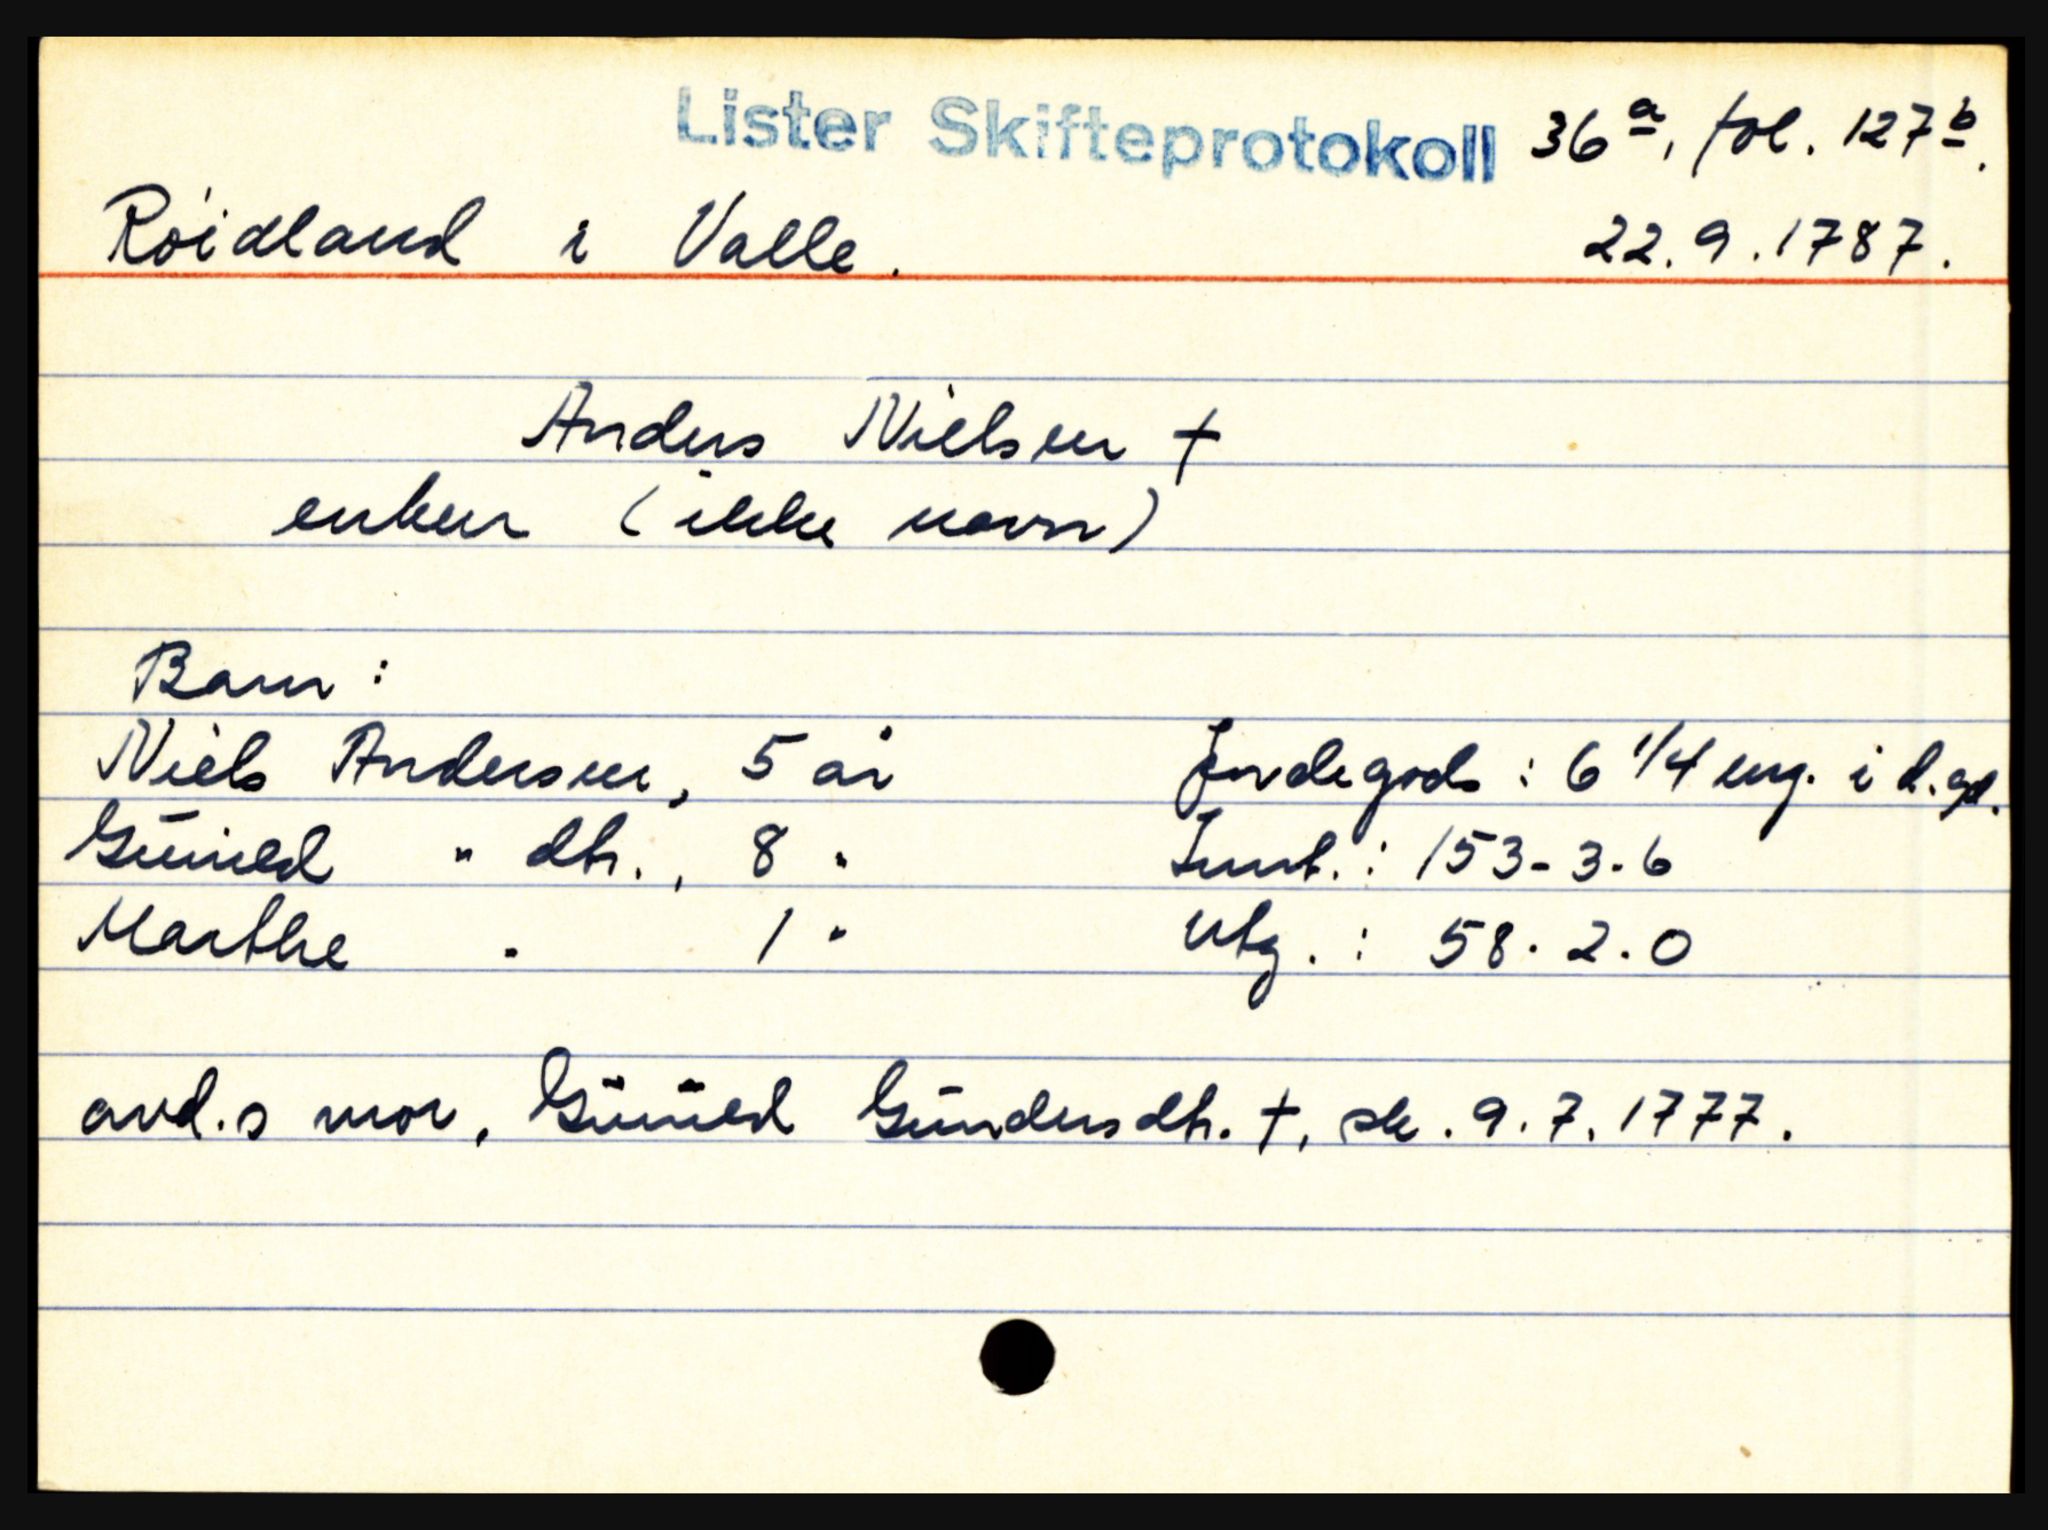 Lister Skifteprotokoll 36a, fol. 127b.
Róidland i Valle. 22.9.1787.
Anders Nielsen †
enken (ikke navn)
Barn:
Niels Andersen, 5 år Jordegods: 6 1/4 eng. i d. gd.
Gúnild " dtr., 8 " Innt.: 153-3-6
Marthe " 1 " Utg.: 58.2.0
avd.s mor, Gúnild Gúndersdtr. †, sk. 9.7.1777.